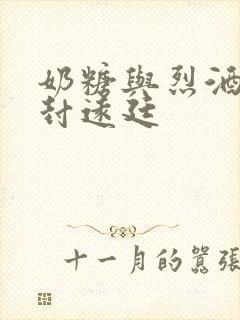 奶糖與烈酒
封遠廷
十一月的囂張